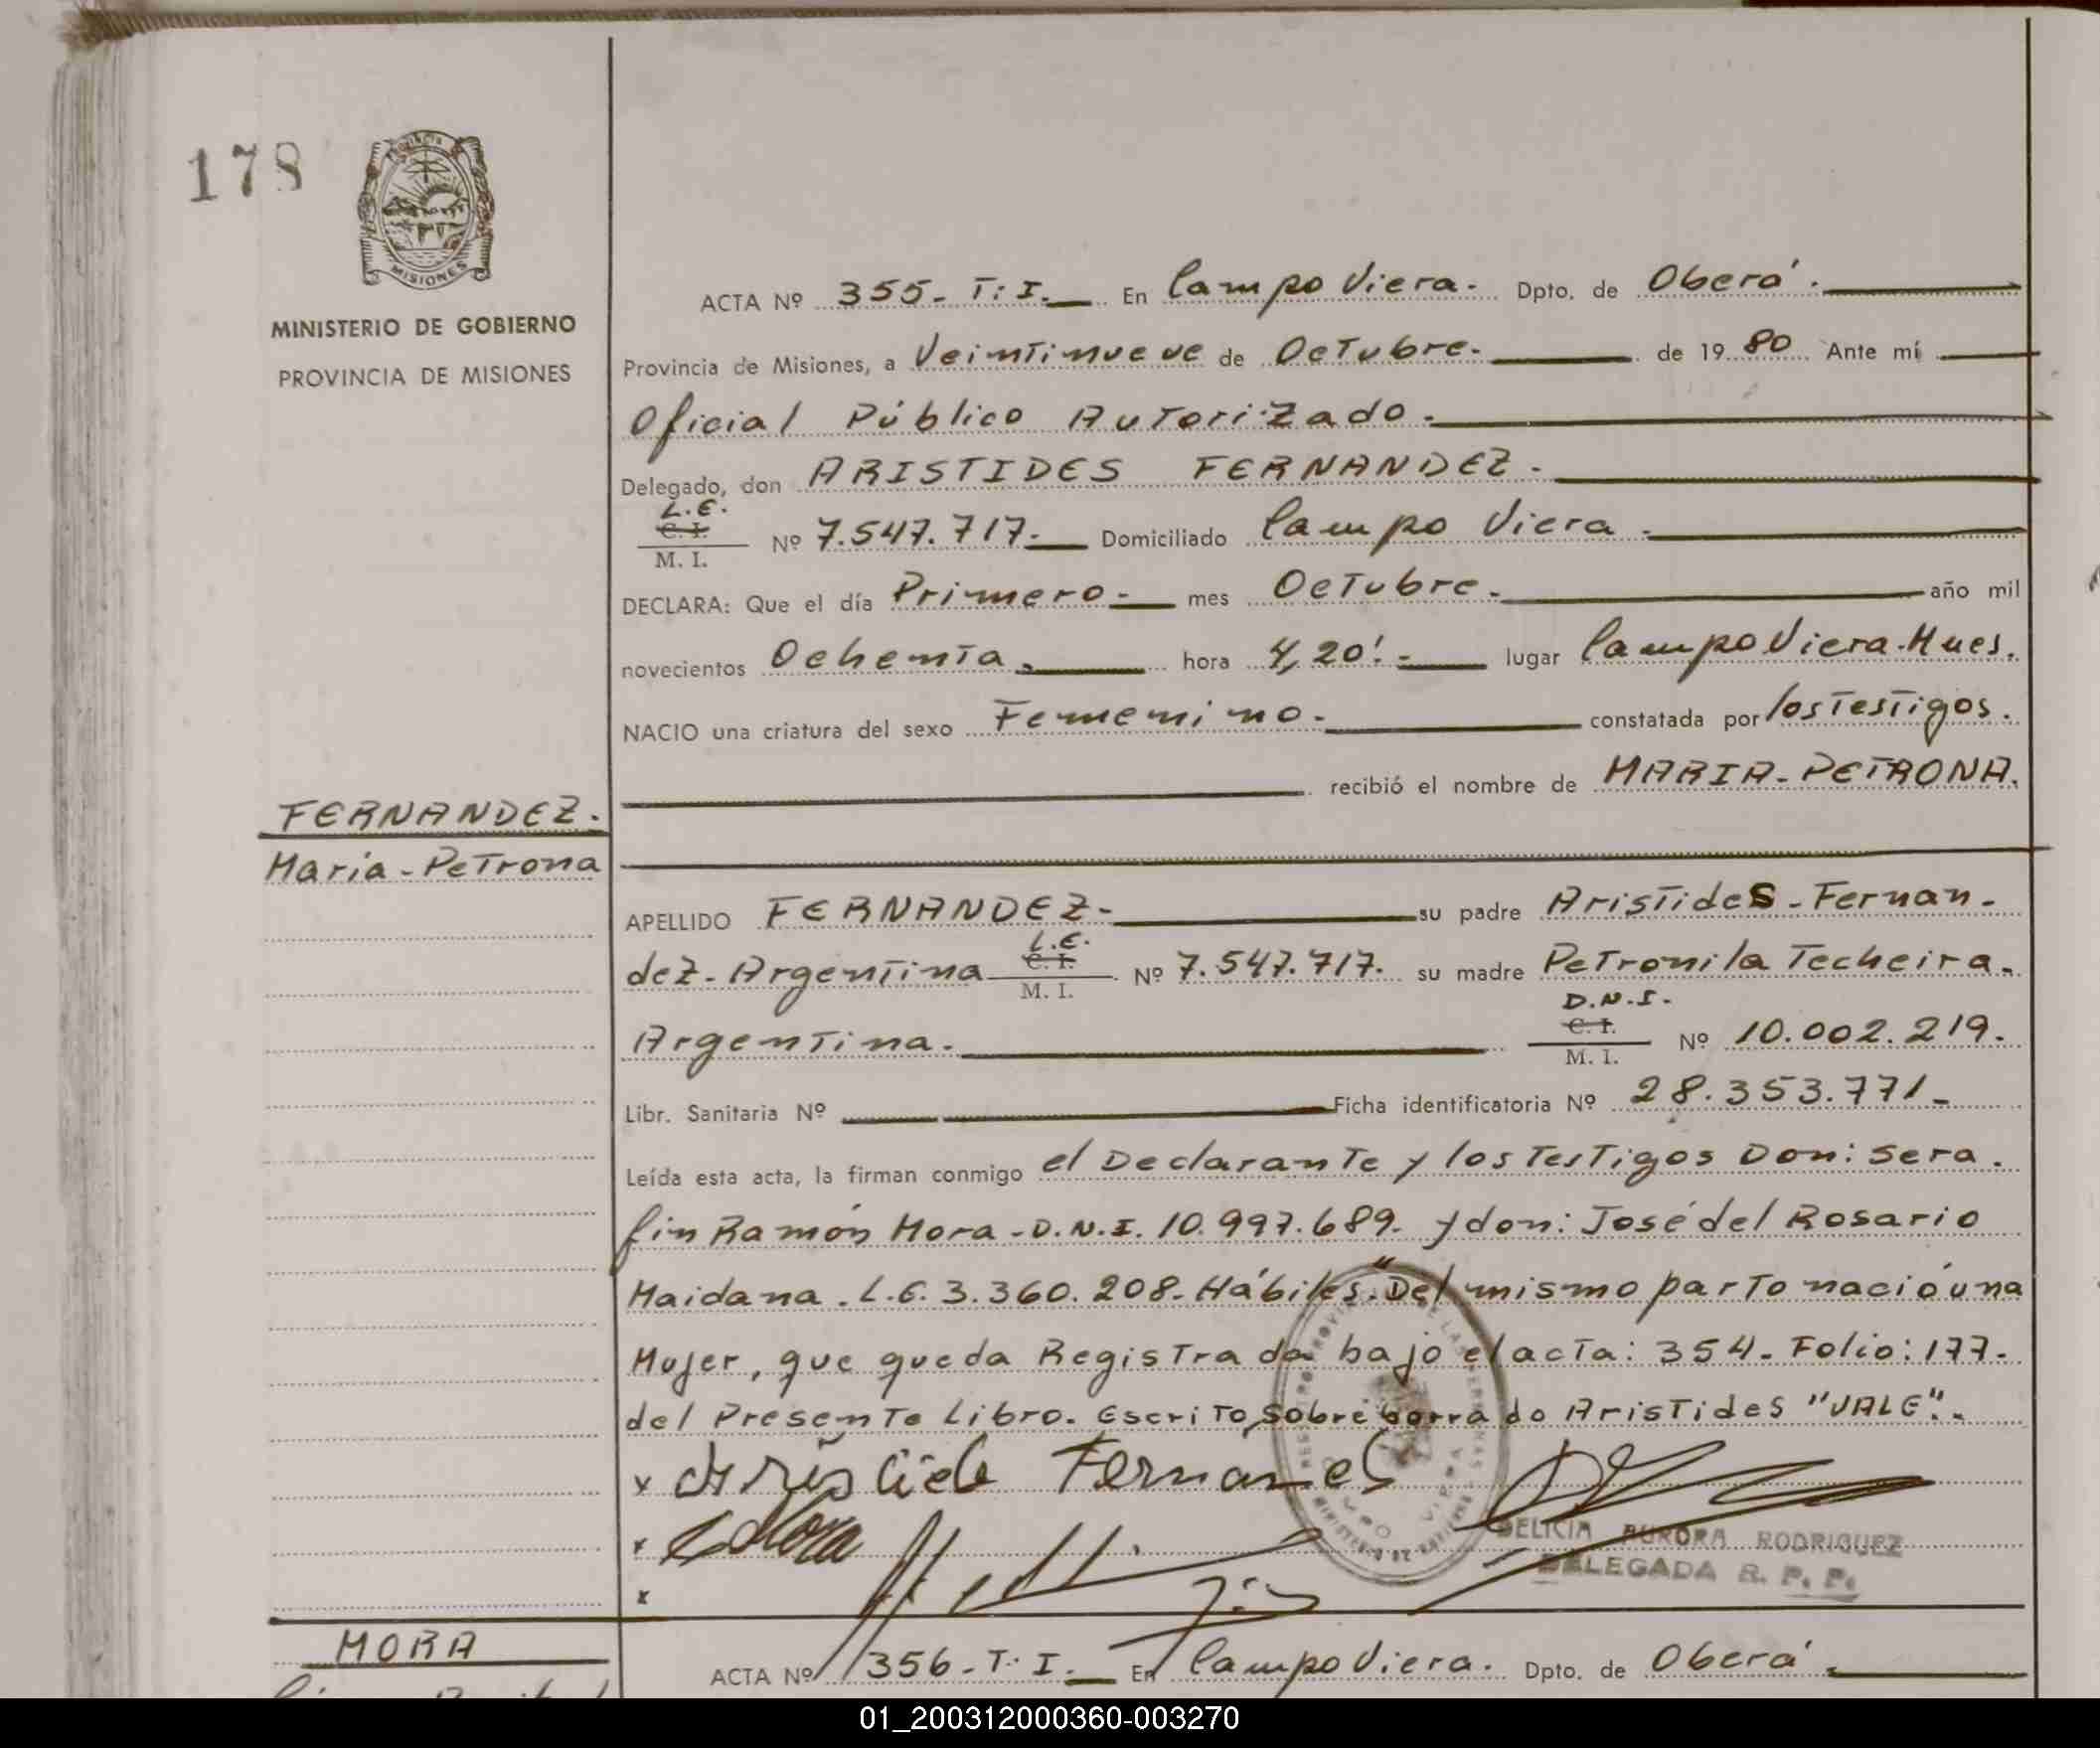 178
PROVINCIA
MISIONES
MINISTERIO DE GOBIERNO
PROVINCIA DE MISIONES
ACTA Nº 355- T: I. En Campo Viera. Dpto. de Oberá.
Provincia de Misiones, a Veintinueve de Octubre. de 1980 Ante mí
Oficial Público Autorizado.
Delegado, don ARISTIDES FERNANDEZ.
L.E.
C. I.
M. I. Nº 7.547.717. Domiciliado Campo Viera.
DECLARA: Que el día Primero. mes Octubre. año mil
novecientos Ochenta. hora 4,20'. lugar Campo Viera. Mnes.
NACIO una criatura del sexo Femenino. constatada por los Testigos.
recibió el nombre de MARIA-PETRONA.
FERNANDEZ.
Maria-Petrona
APELLIDO FERNANDEZ- su padre Aristides-Fernan-
L.E.
dez-Argentina C. I. M. I. Nº 7.547.717. su madre Petronila Techeira.
D.N.I.
Argentina. C. I. M. I. Nº 10.002.219.
Libr. Sanitaria Nº Ficha identificatoria Nº 28.353.771-
Leída esta acta, la firman conmigo el Declarante y los Testigos Don: Sera.
fin Ramón Mora-D.N.I. 10.997.689. y don: José del Rosario
Maidana. L.E. 3.360.208. Hábiles. "Del mismo parto nació una
Mujer, que queda Registrada bajo el acta: 354. Folio: 177.
del Presente Libro. Escrito sobre borrado Aristides "VALE".
x Aristide Fernandes
x Mora
x
DELICIA AURORA RODRIGUEZ
DELEGADA R. P. P.
MORA
ACTA Nº 356-T: I. En Campo Viera. Dpto. de Oberá.
01_200312000360-003270